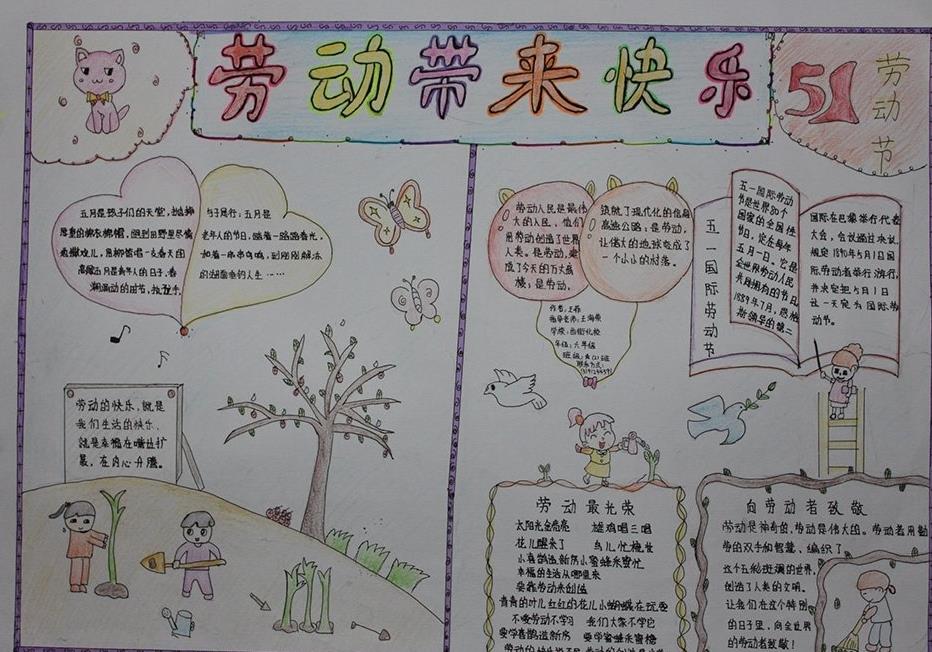 劳动带来快乐
51
劳动节
五月是孩子们的天堂，
与子同行；五月是
老年人的节日，踏着一路踏春光，
劳动的快乐，就是
我们生活的快乐，
就是幸福在嘴边扩
展，在内心升腾。
劳动人民是最伟
大的人民，他们
用劳动创造了世界
人类。是劳动，建
成了今天的万丈高
楼；是劳动，
筑就了现代化的信息
高速公路，是劳动，
让伟大的地球变成了
一个小小的村落。
学校：
年级：六年级
联系方式：
五一国际劳动节
五一国际劳动
节是世界80个
国家的全国性
节日，定在每年
五月一日。它是
全世界劳动人民
共同拥有的节日
1889年7月，恩格
斯领导的第二
国际在巴黎举行代表
大会，会议通过决议，
规定1890年5月1日国
际劳动者举行游行，
并决定把5月1日
这一天定为国际劳
动节。
劳动最光荣
太阳光金亮亮 雄鸡唱三唱
花儿醒来了 鸟儿忙梳妆
小喜鹊造新房小蜜蜂采蜜忙
幸福的生活从哪里来
要靠劳动来创造
青青的叶儿红红的花儿小蝴蝶在玩耍
不爱劳动不学习 我们大家不学它
要学喜鹊造新房 要学蜜蜂采蜜糖
向劳动者致敬
劳动是神奇的，劳动是伟大的。劳动者用勤
劳的双手和智慧，编织了
这个五彩斑斓的世界，
创造了人类的文明。
让我们在这个特别
的日子里，向全世界
的劳动者致敬！